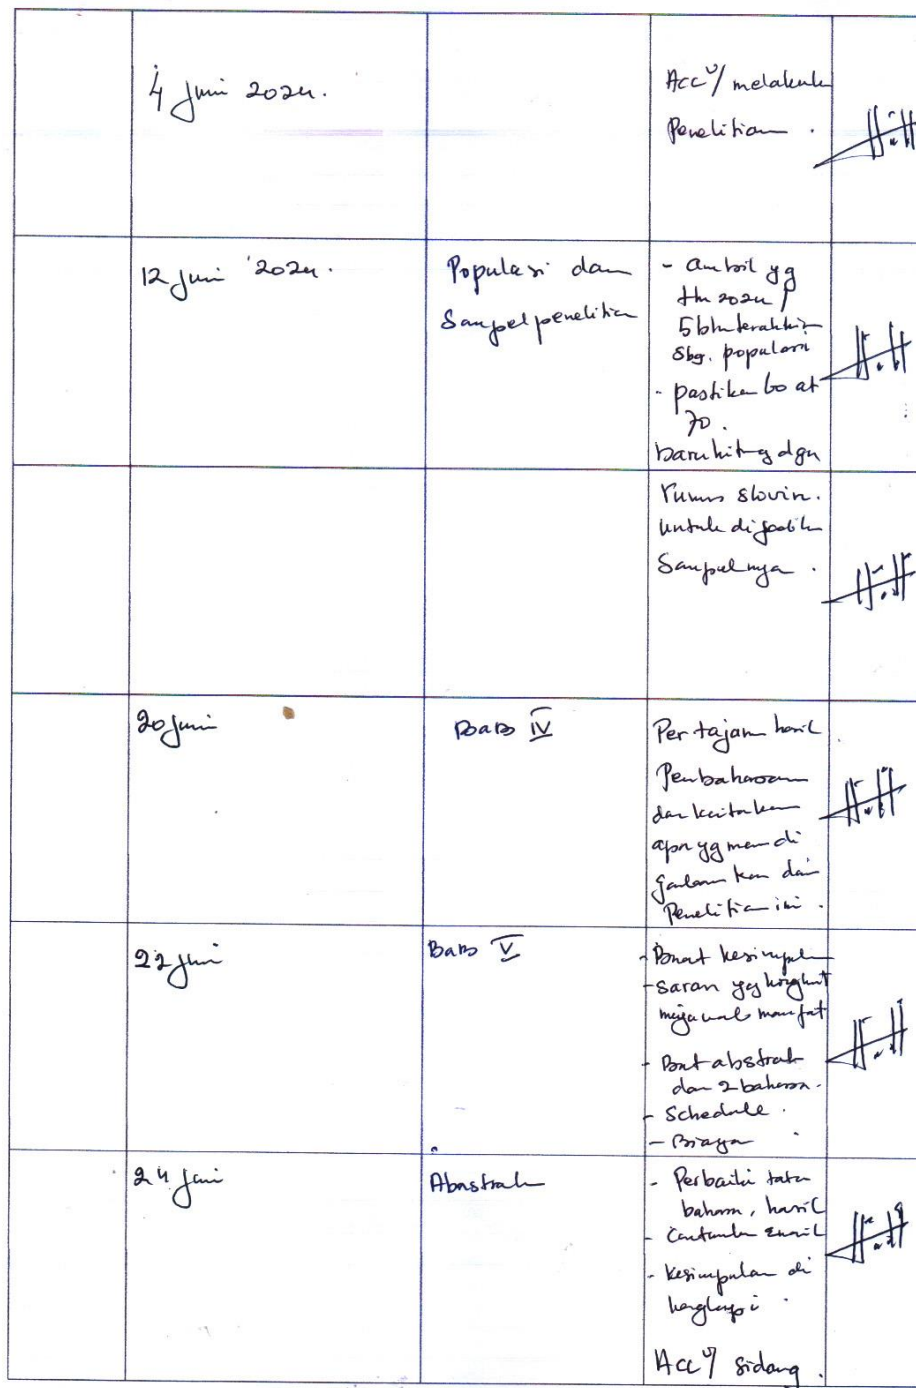 4 Juni 2024.
Acc u/ melakuk
Penelitian.
12 Juni 2024.
Populasi dan
Sampel penelitian
- Ambil yg
thn 2024 /
5 bln terakhir
sbg. populasi
- pastikan 60 at
70.
baru hitung dgn
rumus slovin.
untuk dijadikan
Sampelnya.
20 Juni
Bab IV
Pertajam hasil
Pembahasan
dan kaitakan
apa yg men di
Penelitian ini.
22 Juni
Bab V
- Buat kesimpulan
- saran yg
manfat
- Buat abstrak
dan 2 bahasa.
- Schedule.
- Biaya
24 Juni
Abastrak
- Perbaiki tata
bahasa, hasil
- Cantumkan Email
- Kesimpulan di
lengkapi.
Acc u/ sidang.